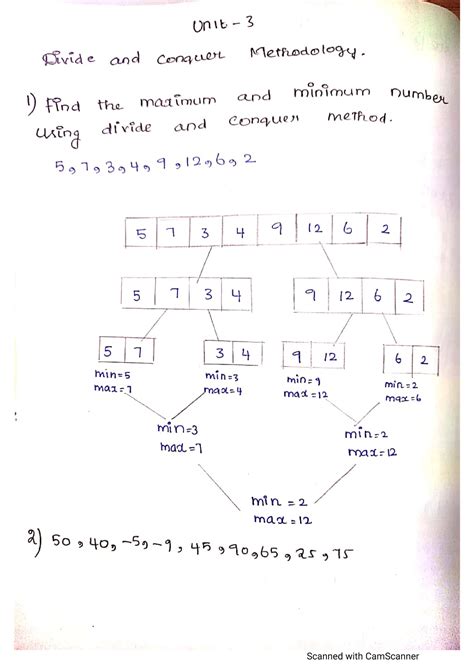 Unit - 3
Divide and conquer Methodology.
1) Find the maximum and minimum number
using divide and conquer method.
5, 7, 3, 4, 9, 12, 6, 2
5 7 3 4 9 12 6 2
5 7 3 4 9 12 6 2
5 7 3 4 9 12 6 2
min=5 min=3 min=9 min=2
max=7 max=4 max=12 max=6
min=3 min=2
max=7 max=12
min = 2
max = 12
2) 50, 40, -5, -9, 45, 90, 65, 25, 75
Scanned with CamScanner